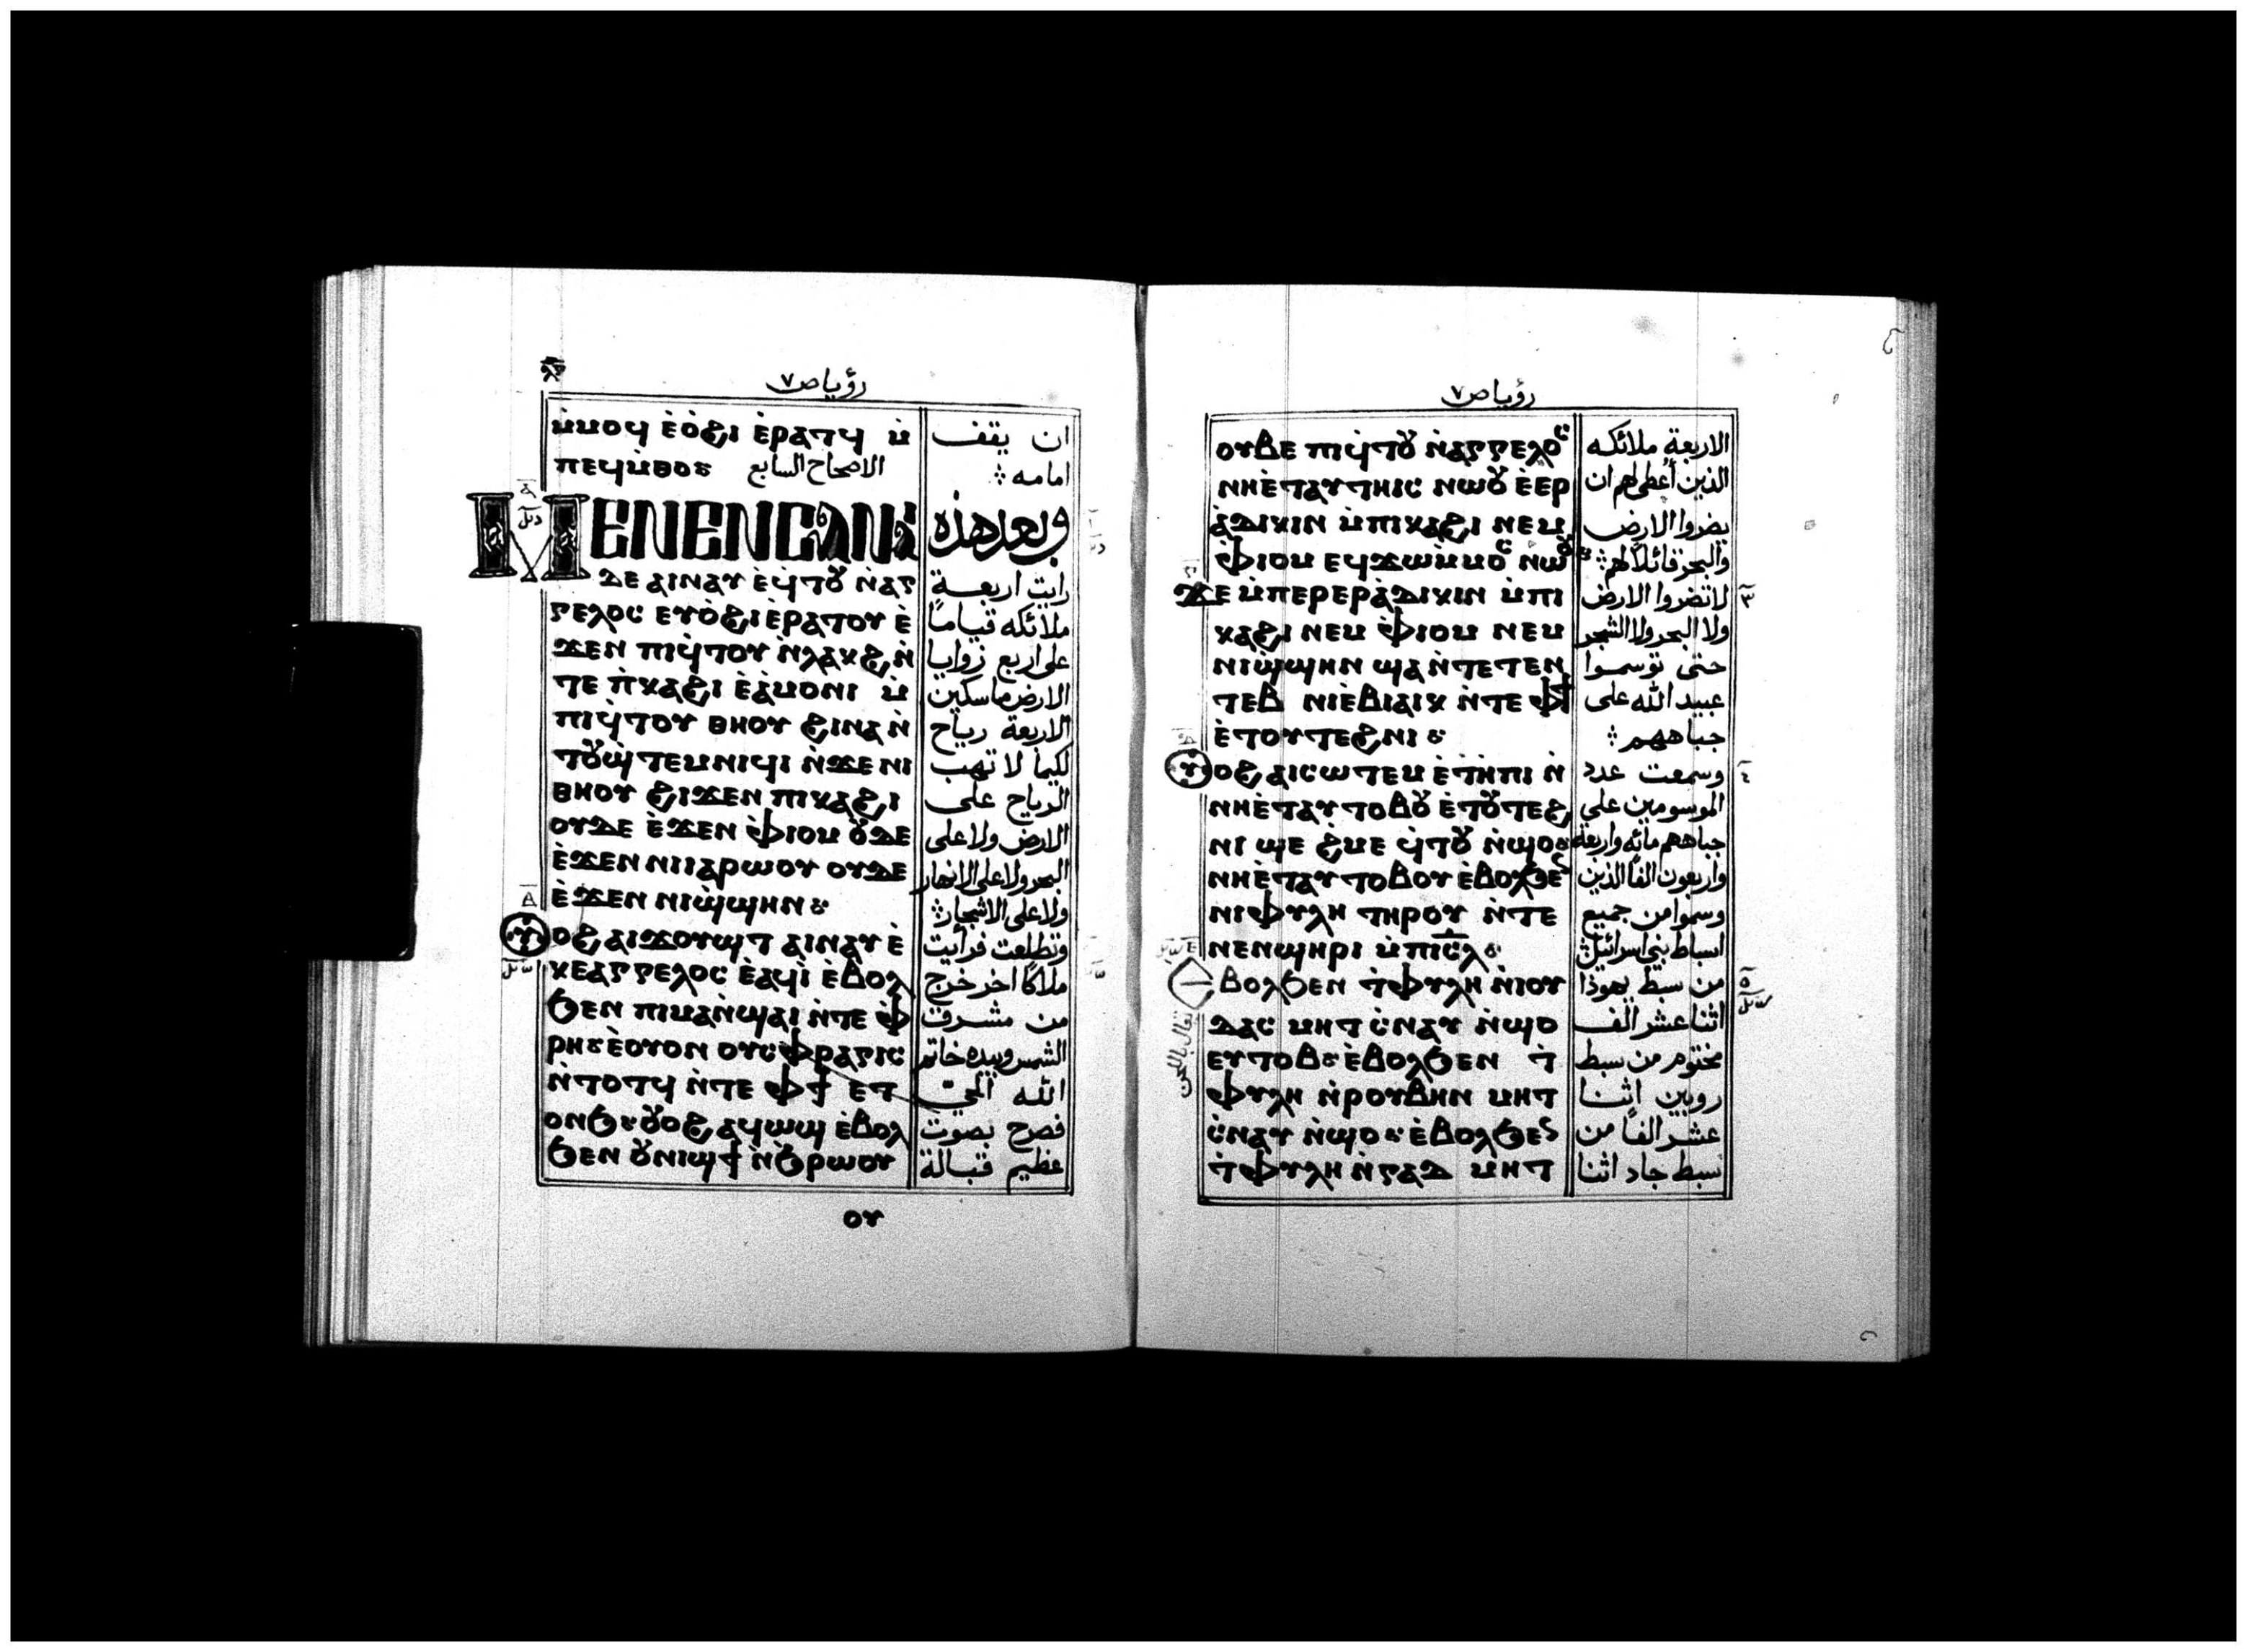 رؤيا ص ٧
ⲙ̀ⲙⲟϥ ⲉ̀ⲟ̀ϩⲓ ⲉ̀ⲣⲁⲧϥ ⲙ̀
ⲡⲉϥⲙ̀ⲑⲟ ⁖ الاصحاح السابع
ⲘⲈⲚⲈⲚⲤⲀⲚⲀⲒ
ⲇⲉ ⲁⲓⲛⲁⲩ ⲉ̀ϥ̀ⲧⲟ⩌ ⲛ̀ⲁⲅ
ⲅⲉⲗⲟⲥ ⲉⲩⲟ̀ϩⲓ ⲉ̀ⲣⲁⲧⲟⲩ ⲉ̀
ϫⲉⲛ ⲡⲓϥ̀ⲧⲟⲩ ⲛ̀ⲗⲁⲕϩ ⲛ̀
ⲧⲉ ⲡ̀ⲕⲁϩⲓ ⲉ̀ⲁ̀ⲙⲟⲛⲓ ⲙ̀
ⲡⲓϥ̀ⲧⲟⲩ ⲑⲏⲟⲩ ϩⲓⲛⲁ ⲛ̀
ⲧⲟⲩϣ̀ⲧⲉⲙⲛⲓϥⲓ ⲛ̀ϫⲉ ⲛⲓ
ⲑⲏⲟⲩ ϩⲓϫⲉⲛ ⲡⲓⲕⲁϩⲓ
ⲟⲩⲇⲉ ⲉ̀ϫⲉⲛ ⲫ̀ⲓⲟⲙ ⲟⲩⲇⲉ
ⲉ̀ϫⲉⲛ ⲛⲓⲓⲁⲣⲱⲟⲩ ⲟⲩⲇⲉ
ⲉ̀ϫⲉⲛ ⲛⲓϣ̀ϣⲏⲛ ⁖
ⲟⲩⲟϩ ⲁⲓϫⲟⲩϣⲧ ⲁⲓⲛⲁⲩ ⲉ̀
ⲕⲉⲁⲅⲅⲉⲗⲟⲥ ⲉ̀ⲁϥⲓ̀ ⲉ̀ⲃⲟⲗ
ϧⲉⲛ ⲡⲓⲙⲁⲛ̀ϣⲁⲓ ⲛ̀ⲧⲉ ⲫ̀
ⲣⲏ ⁖ ⲉ̀ⲟⲩⲟⲛ ⲟⲩⲥⲫⲣⲁⲅⲓⲥ
ⲛ̀ⲧⲟⲧϥ ⲛ̀ⲧⲉ ⲫϯ ⲉⲧ
ⲟⲛϧ ⁖ ⲟⲩⲟϩ ⲁϥⲱϣ ⲉ̀ⲃⲟⲗ
ϧⲉⲛ ⲟⲩⲛⲓϣϯ ⲛ̀ϧ̀ⲣⲱⲟⲩ
ⲟⲩ
ان يقف
امامه ⁖
وبعد هذه
رايت اربعة
ملائكه قياماً
على اربع زوايا
الارض ماسكين
الاربعة رياح
لكيما لا تهب
الرياح على
الارض ولا على
البحر ولا على الانهار
ولا على الاشجار ⁖
وتطلعت فرأيت
ملاكاً اخر خرج
من مشرق
الشمس وبيده خاتم
الله الحيّ
فصرح بصوت
عظيم قبالة
رؤيا ص ٧
ⲟⲩⲇⲉ ⲡⲓϥ̀ⲧⲟⲩ ⲛ̀ⲁⲅⲅⲉⲗⲟⲥ
ⲛⲏⲉ̀ⲧⲁⲩⲧⲏⲓⲥ ⲛⲱⲟⲩ ⲉ̀ⲉⲣ
ⲁ̀ⲇⲓⲕⲓⲛ ⲙ̀ⲡⲓⲕⲁϩⲓ ⲛⲉⲙ
ⲫ̀ⲓⲟⲙ ⲉϥϫⲱⲙ̀ⲙⲟⲥ ⲛⲱⲟⲩ ⁖
ϫⲉ ⲙ̀ⲡⲉⲣⲉⲣⲁ̀ⲇⲓⲕⲓⲛ ⲙ̀ⲡⲓ
ⲕⲁϩⲓ ⲛⲉⲙ ⲫ̀ⲓⲟⲙ ⲛⲉⲙ
ⲛⲓϣ̀ϣⲏⲛ ϣⲁⲛ̀ⲧⲉⲧⲉⲛ
ⲧⲉⲃ ⲛⲓⲉ̀ⲃⲓⲁⲓⲕ ⲛ̀ⲧⲉ ⲫϯ
ⲉ̀ⲧⲟⲩⲧⲉϩⲛⲓ ⁖
ⲟⲩⲟϩ ⲁⲓⲥⲱⲧⲉⲙ ⲉ̀ⲧ̀ⲏⲡⲓ ⲛ̀
ⲛⲏⲉ̀ⲧⲁⲩⲧⲟⲃⲟⲩ ⲉ̀ⲧⲟⲩⲧⲉϩ
ⲛⲓ ϣⲉ ϩ̀ⲙⲉ ϥ̀ⲧⲟⲩ ⲛ̀ϣⲟ ⁖
ⲛⲏⲉ̀ⲧⲁⲩⲧⲟⲃⲟⲩ ⲉ̀ⲃⲟⲗϧⲉⲛ
ⲛⲓⲫⲩⲗⲏ ⲧⲏⲣⲟⲩ ⲛ̀ⲧⲉ
ⲛⲉⲛϣⲏⲣⲓ ⲙ̀ⲡⲓⲥ̅ⲗ ⁖
ⲉ̀ⲃⲟⲗϧⲉⲛ ⲧ̀ⲫⲩⲗⲏ ⲛ̀ⲓⲟⲩ
ⲇⲁⲥ ⲙⲏⲧ ⲥ̀ⲛⲁⲩ ⲛ̀ϣⲟ
ⲉⲩⲧⲟⲃ ⁖ ⲉ̀ⲃⲟⲗϧⲉⲛ ⲧ̀
ⲫⲩⲗⲏ ⲛ̀ⲣⲟⲩⲃⲏⲛ ⲙⲏⲧ
ⲥ̀ⲛⲁⲩ ⲛ̀ϣⲟ ⁖ ⲉ̀ⲃⲟⲗϧⲉⲛ
ⲧ̀ⲫⲩⲗⲏ ⲛ̀ⲅⲁⲇ ⲙⲏⲧ
تقال باللحن
الاربعة ملائكه
الذين أُعطى لهم ان
يضروا الارض
والبحر قائلاً لهم ⁖
لا تضروا الارض
ولا البحر ولا الشجر
حتى توسموا
عبيد الله على
جباههم ⁖
وسمعت عدد
الموسومين على
جباههم مائه واربعة
واربعون الفاً الذين
وسموا من جميع
اسباط بني اسرائيل ⁖
من سبط يهوذا
اثنا عشر الف
مختوم من سبط
روبين اثنا
عشر الفاً من
سبط جاد اثنا
٣
٤
٥